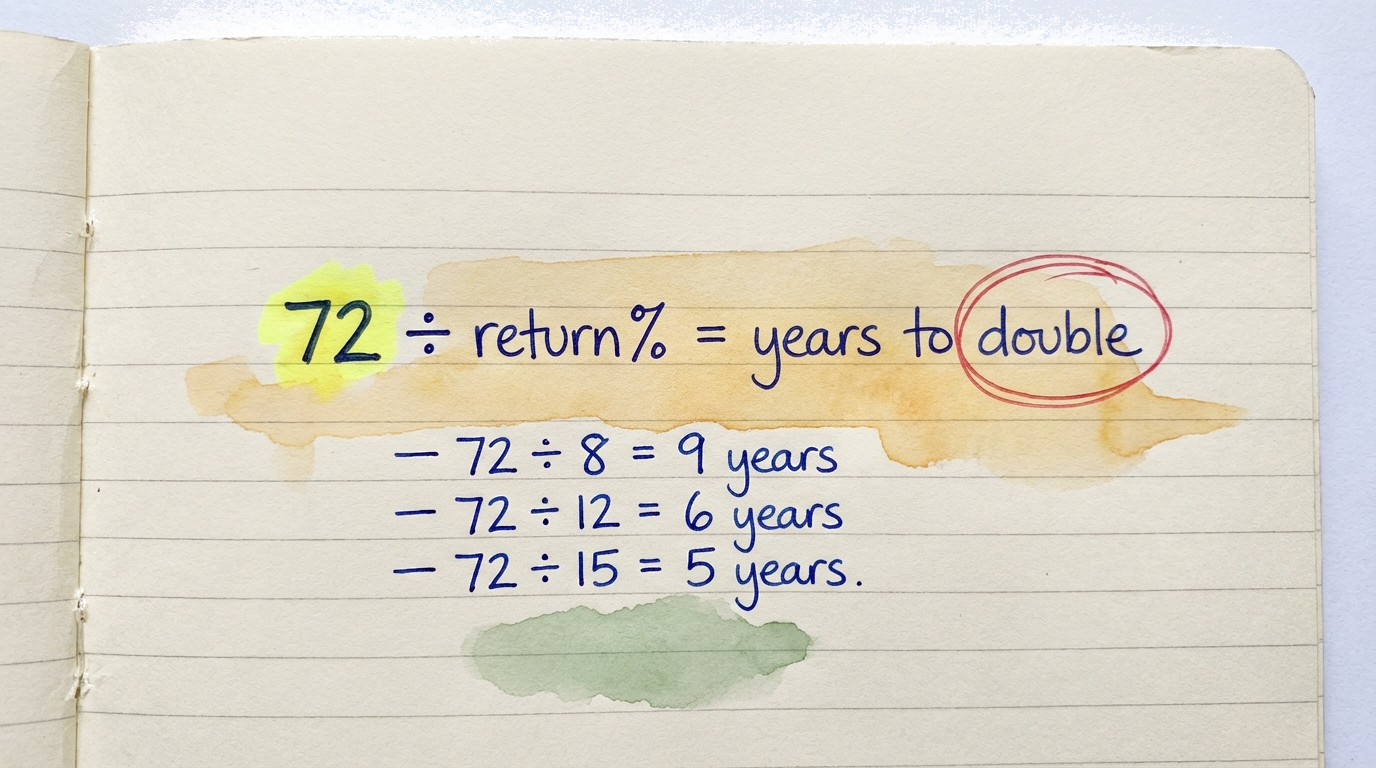 72 ÷ return% = years to double
— 72 ÷ 8 = 9 years
— 72 ÷ 12 = 6 years
— 72 ÷ 15 = 5 years.